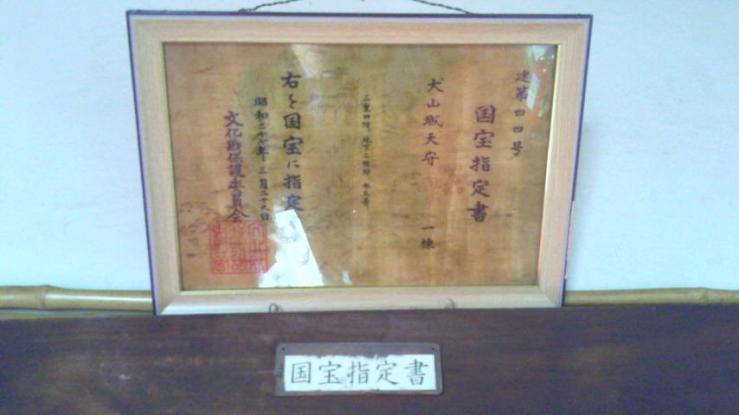 建第四四号
国宝指定書
犬山城天守 一棟
右を国宝に指定
昭和二十七年三月二十九日
文化財保護委員会
国宝指定書